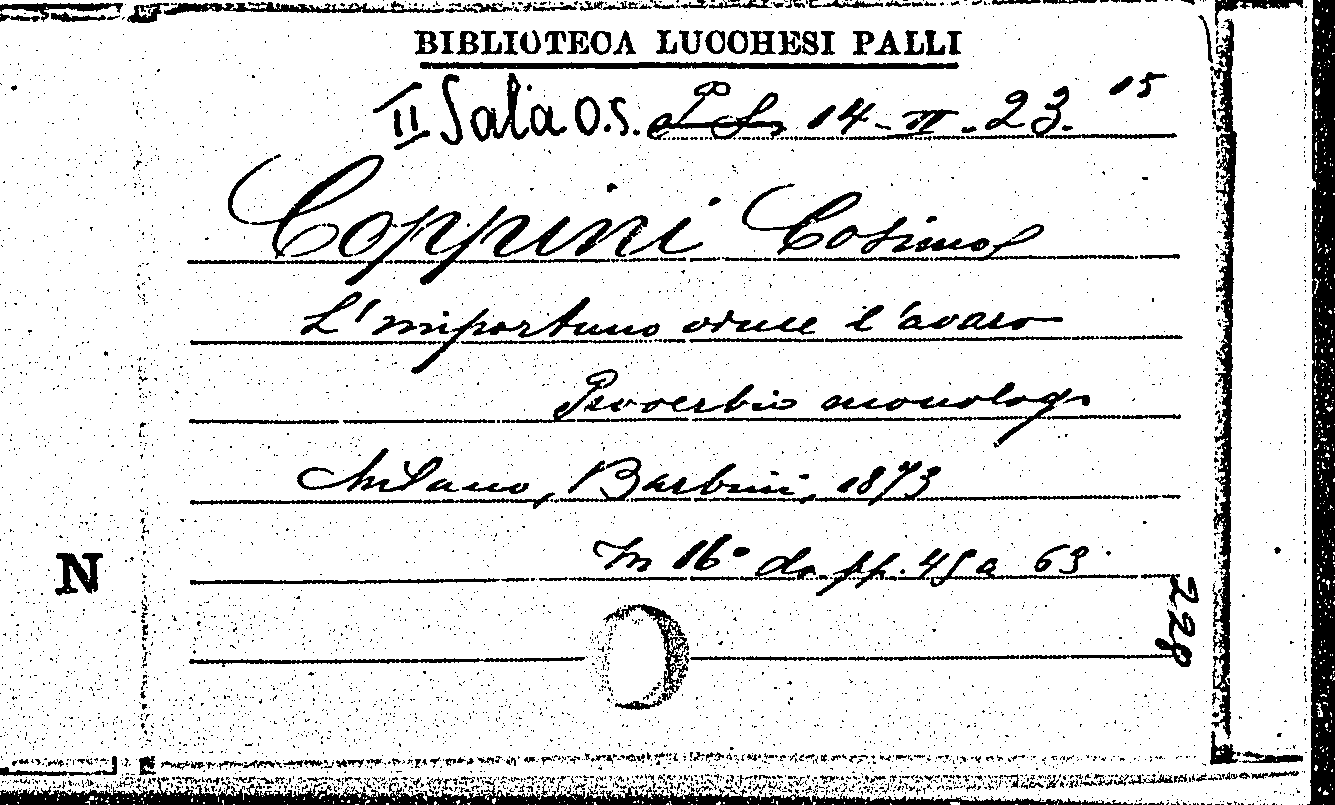 BIBLIOTECA LUCCHESI PALLI
II Sala O.S. 14-II.23.15
Coppini Cosimo
L'importuno vince l'avaro
Proverbio monologo
Milano, Barbini, 1873
In 16° da pp. 45 a 63
N
228